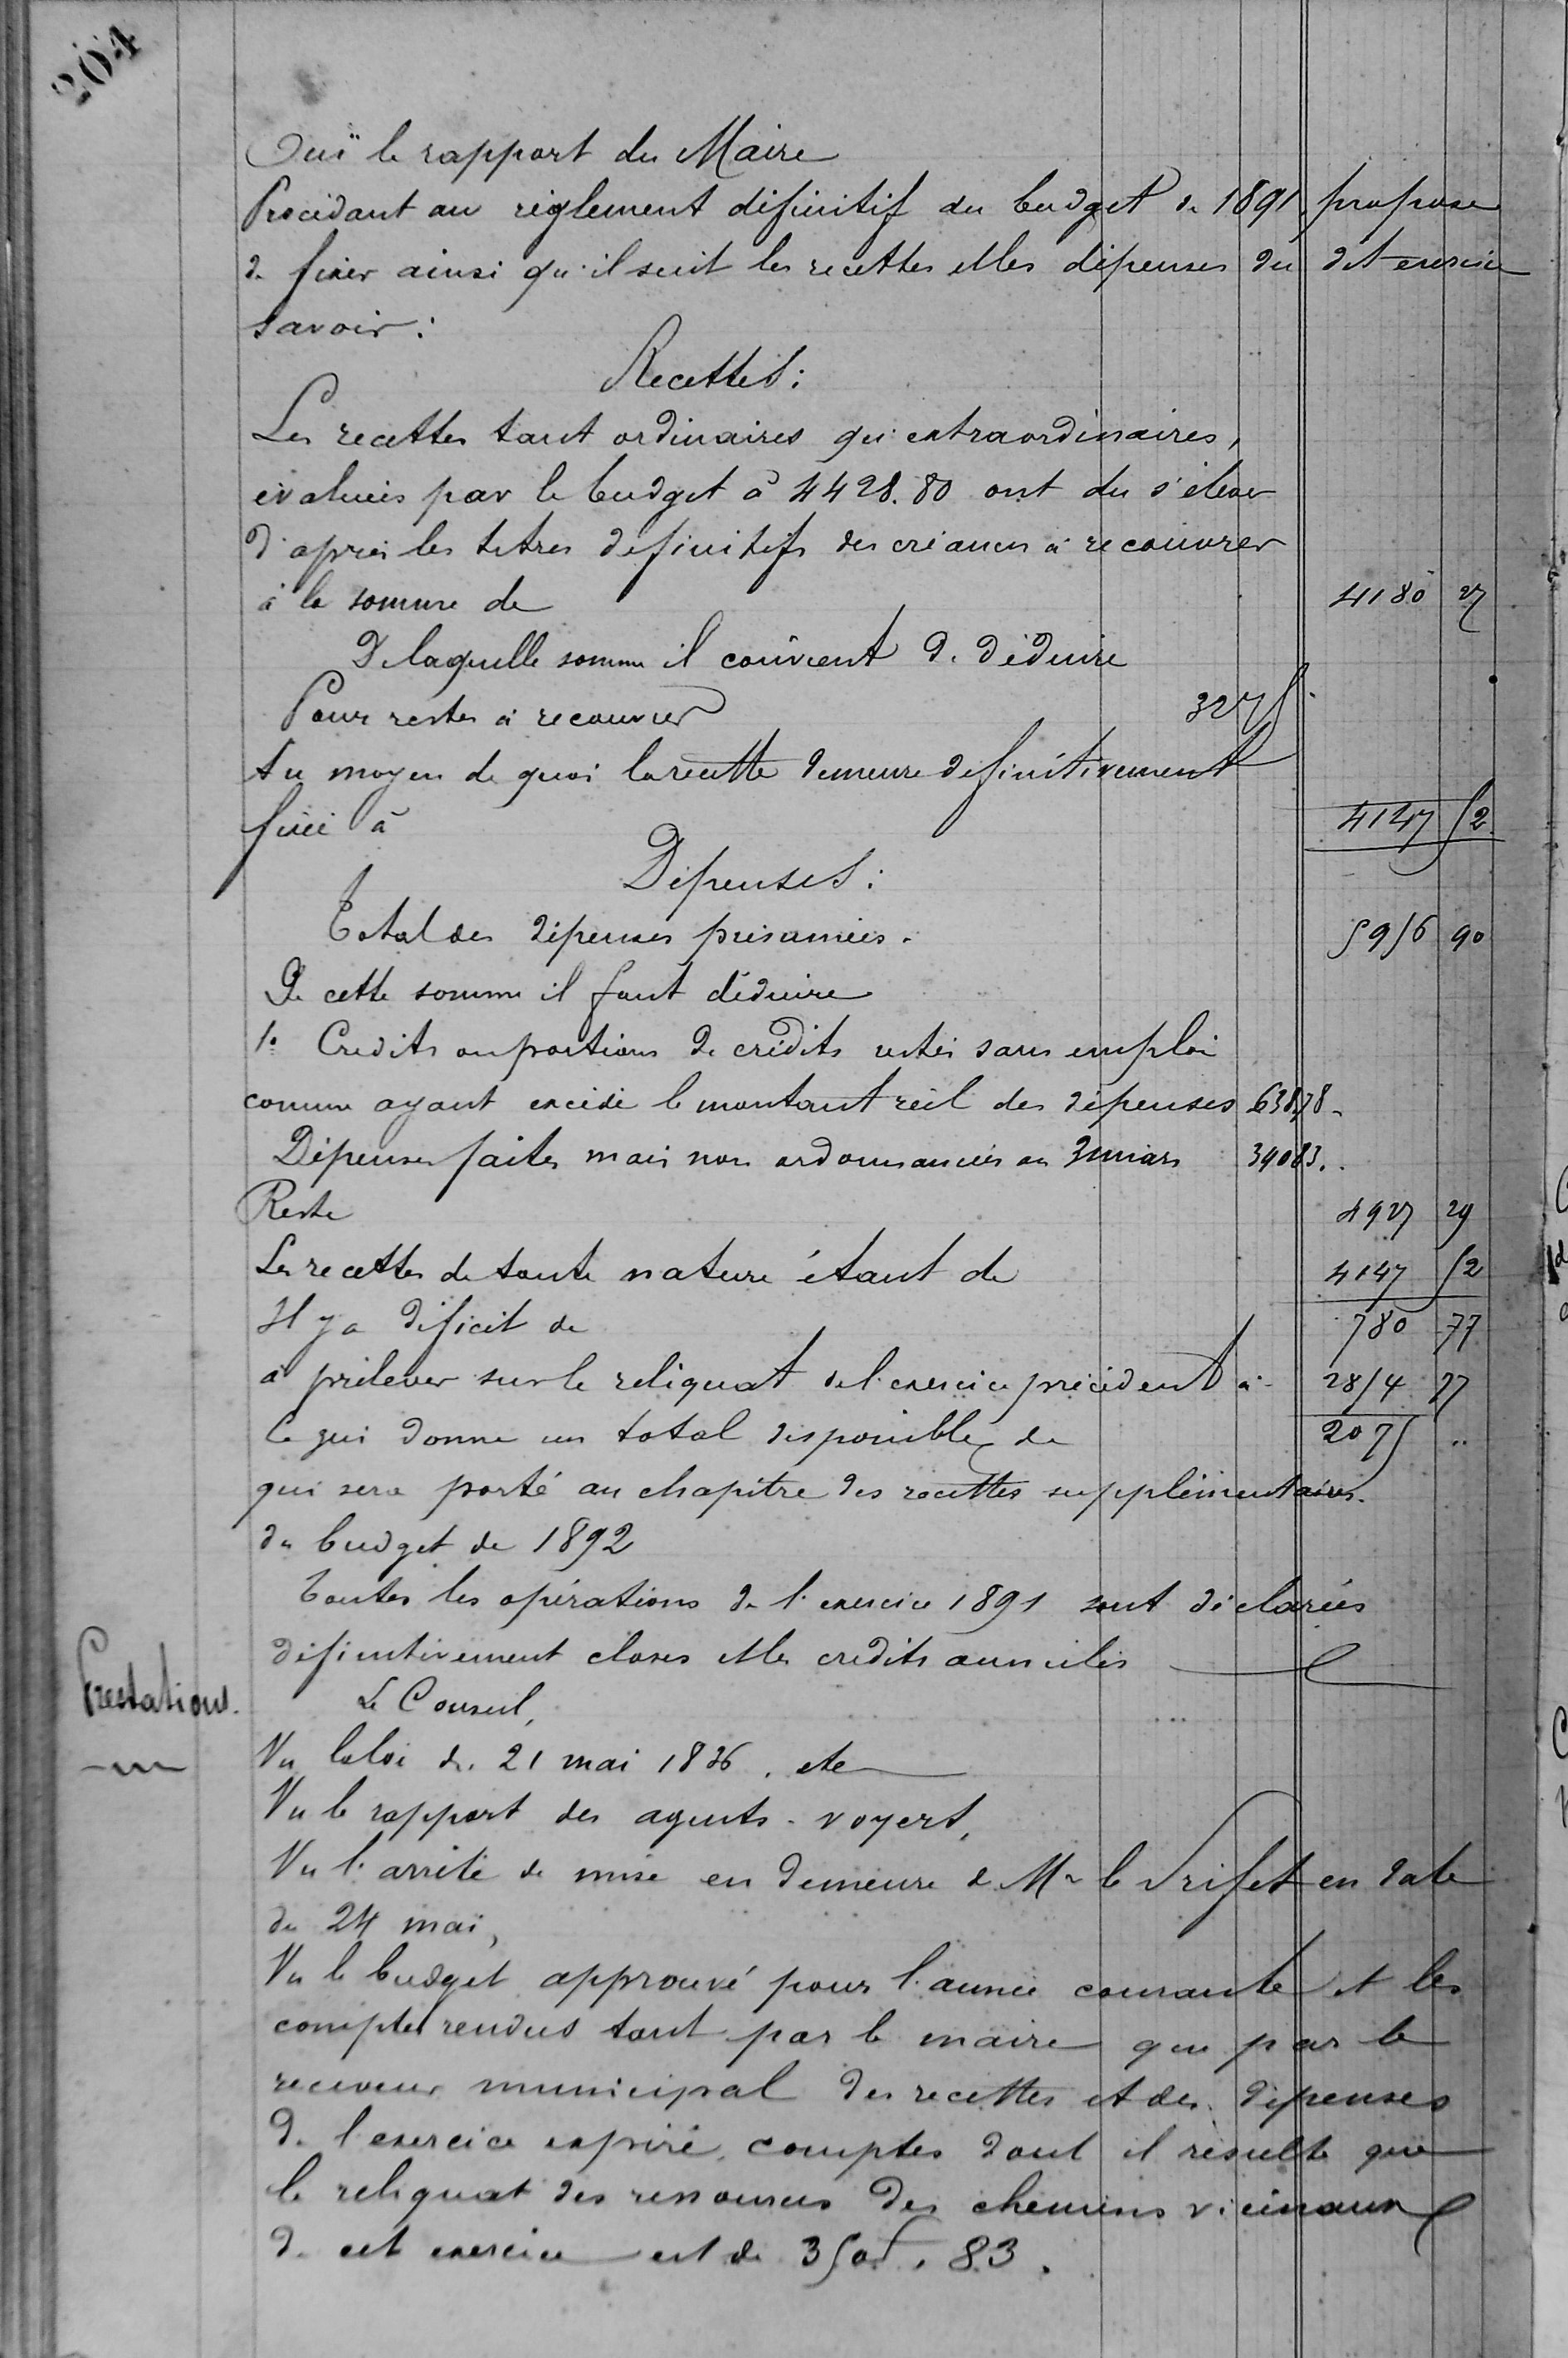 204
Ouï le rapport du Maire
Procédant au règlement définitif du budget de 1891, propose
de fixer ainsi qu'il suit les recettes et les dépenses du dit exercice
savoir :
Recettes :
Les recettes tant ordinaires qu'extraordinaires,
évaluées par le budget à 4428.80 ont du s'élever
d'après les titres définitifs des créances à recouvrer
à la somme de 4180 27
De laquelle somme il convient de déduire
Pour restes à recouvrer 3275
Au moyen de quoi la recette demeure définitivement
fixée à 4147 52
Dépenses :
Total des dépenses présumées. 5956 90
De cette somme il faut déduire
1º Crédits ou portions de crédits restés sans emploi
comme ayant excédé le montant réel des dépenses 638.78
Dépenses faites mais non ordonnancées au 31 mars 390 83.
Reste 4927 29
Les recettes de toute nature étant de 4147 52
Il y a déficit de 780 77
à prélever sur le reliquat de l'exercice précédent à 2854 77
Ce qui donne un total disponible de 2075 "
qui sera porté au chapitre des recettes supplémentaires
du budget de 1892
Toutes les opérations de l'exercice 1891 sont déclarées
définitivement closes et les crédits annulés
Prestations.
Le Conseil,
Vu la loi du 21 mai 1836, etc
Vu le rapport des agents-voyers,
Vu l'arrêté de mise en demeure de Mr le Préfet en date
du 24 mai,
Vu le budget approuvé pour l'année courante et les
comptes rendus tant par le maire que par le
receveur municipal des recettes et des dépenses
de l'exercice expiré, comptes dont il résulte que
le reliquat des ressources des chemins vicinaux
de cet exercice est de 350f,83.